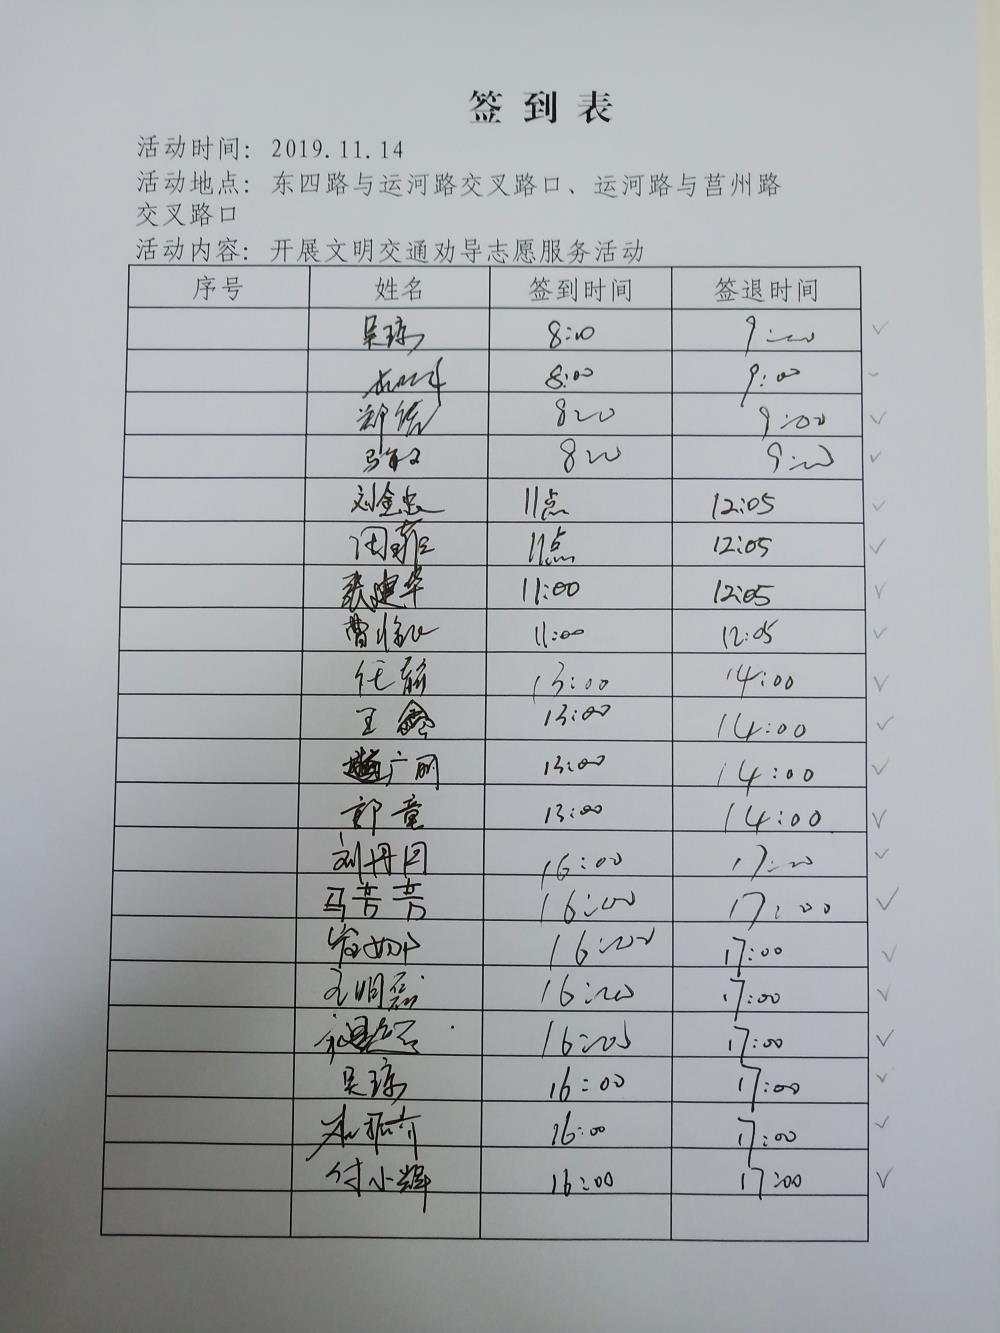 签到表
活动时间：2019.11.14
活动地点：东四路与运河路交叉路口、运河路与莒州路
交叉路口
活动内容：开展文明交通劝导志愿服务活动
序号 姓名 签到时间 签退时间
吴琼 8:00 9:00
8:00 9:00
郑 8:00 9:00
马 8:00 9:00
刘金忠 11点 12:05
11点 12:05
张建华 11:00 12:05
曹 11:00 12:05
任 13:00 14:00
王鑫 13:00 14:00
广明 13:00 14:00
郭童 13:00 14:00
刘丹 16:00 17:00
马芳芳 16:00 17:00
16:00 17:00
王明磊 16:00 17:00
16:00 17:00
吴琼 16:00 17:00
16:00 17:00
付小辉 16:00 17:00